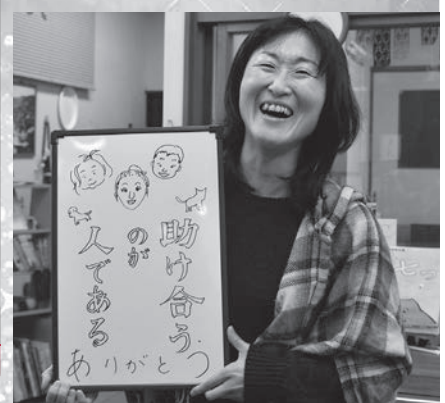 助け合う
のが
人である
ありがとう